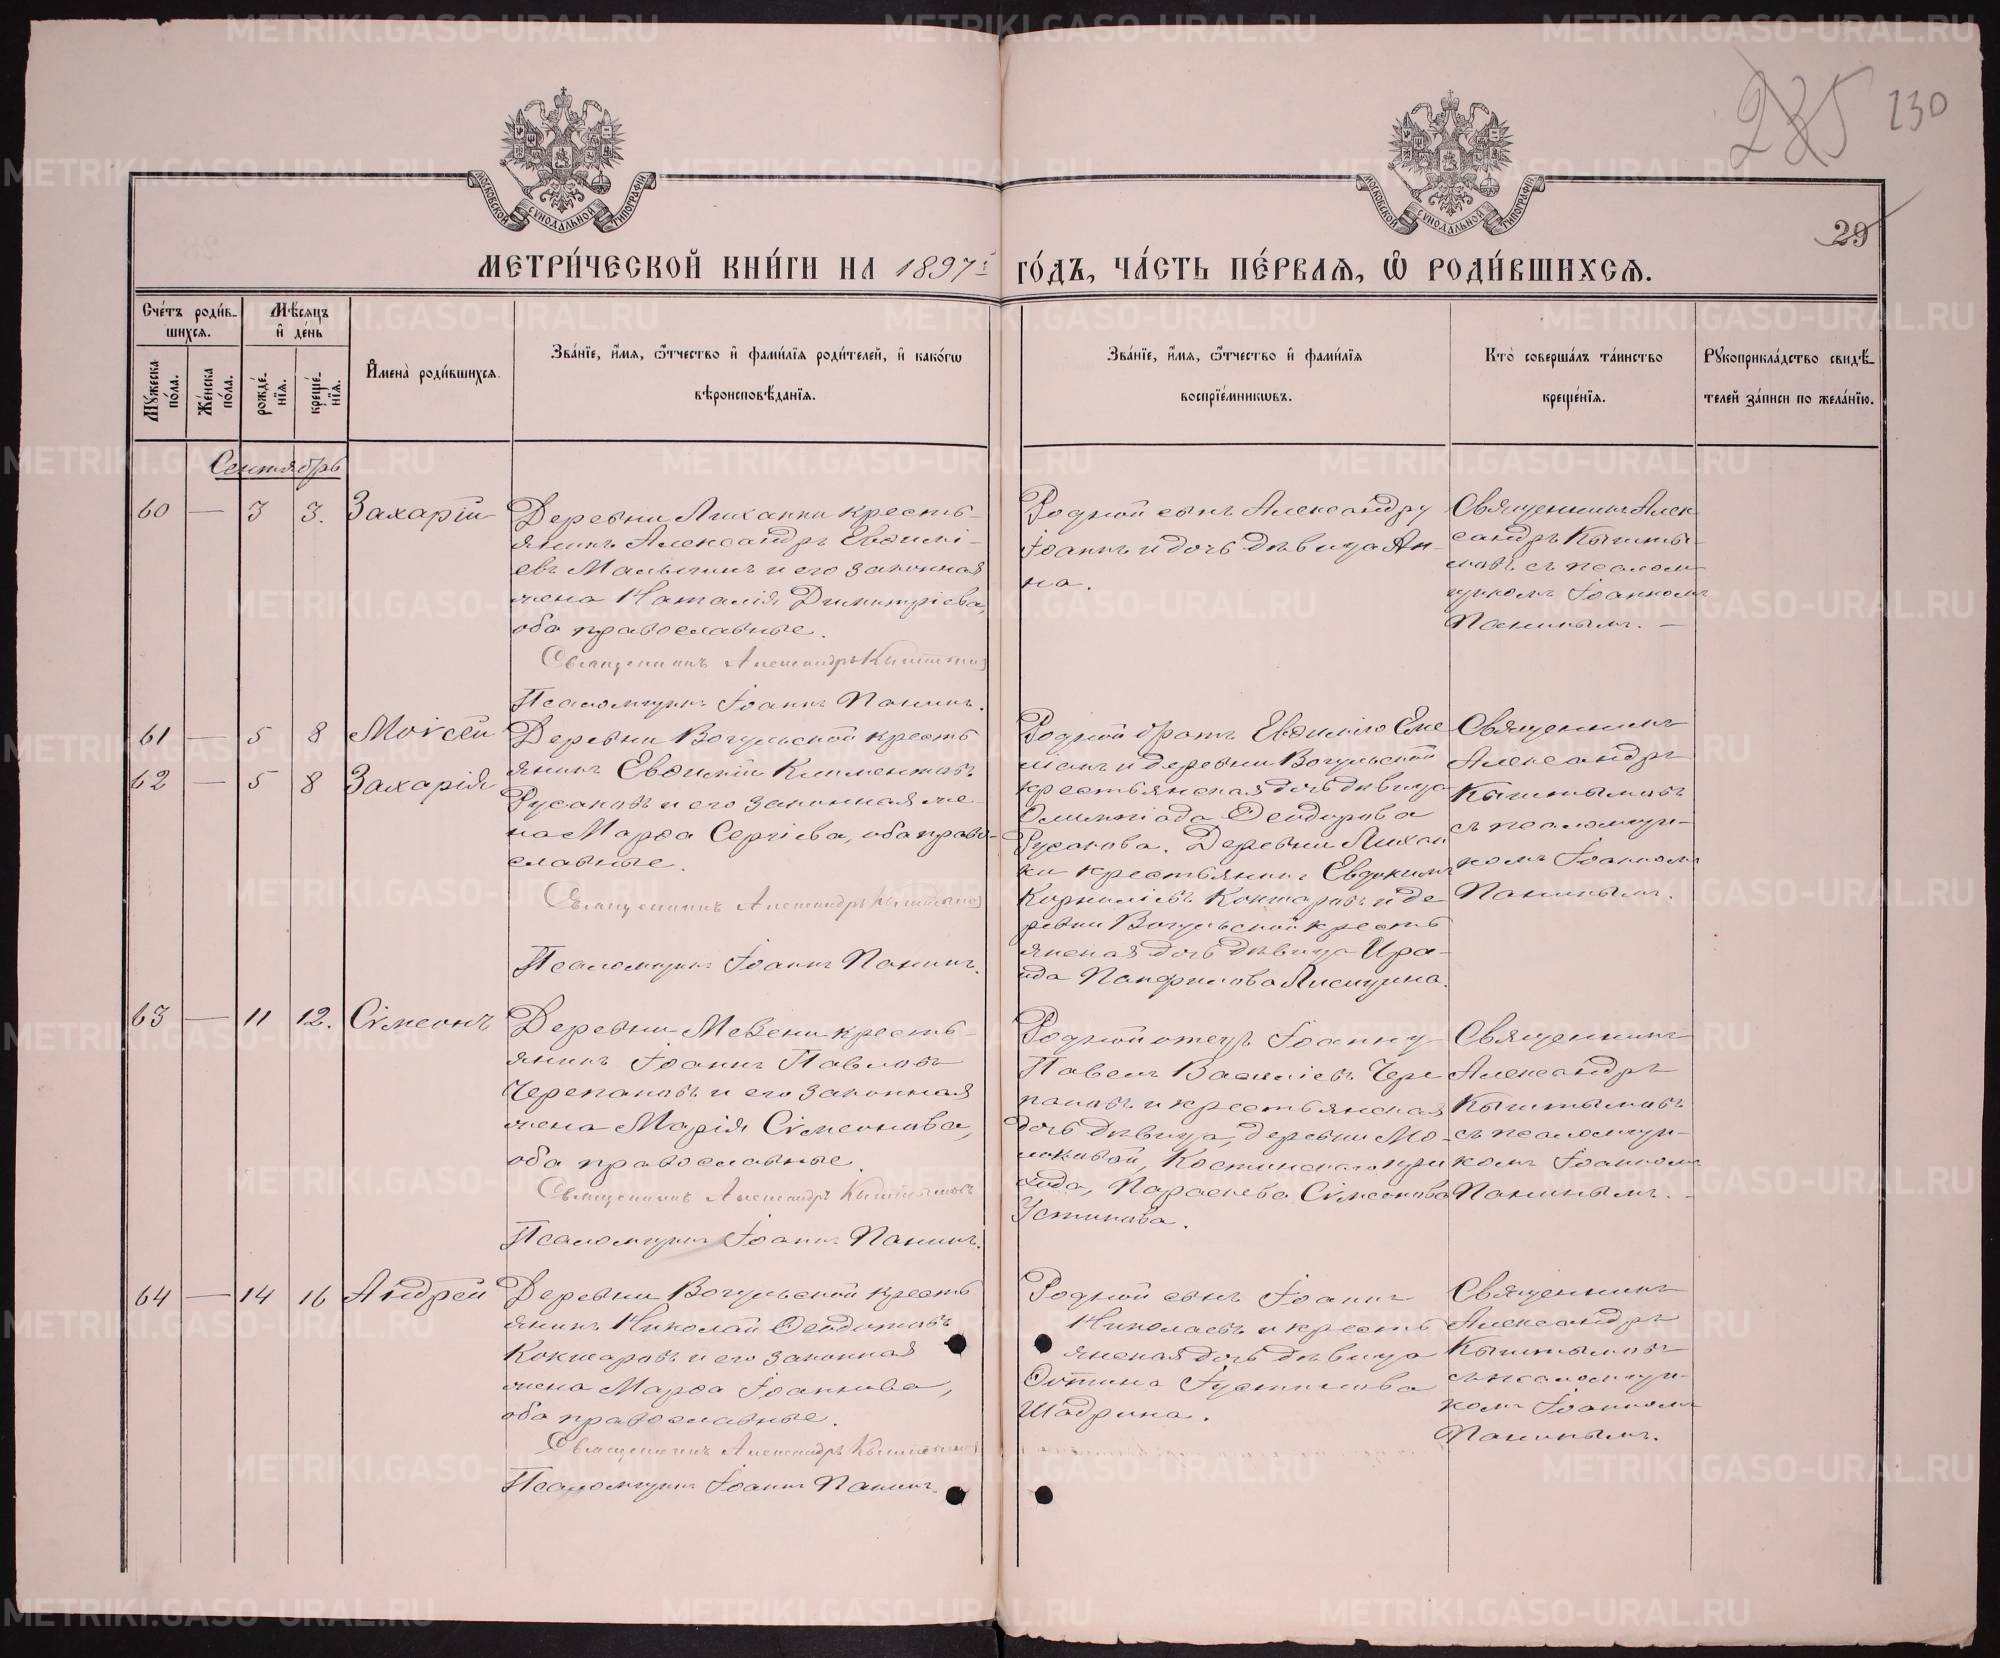 235 230
МОСКОВСКОЙ СѴНОДАЛЬНОЙ ТИПОГРАФІИ
МОСКОВСКОЙ СѴНОДАЛЬНОЙ ТИПОГРАФІИ
29
МЕТРИ́ЧЕСКОЙ КНИ́ГИ НА 1897й ГО́ДЪ, ЧА́СТЬ ПЕ́РВАѦ, Ѽ РОДИ́ВШИХСѦ.
Сче́тъ роди́в-
шихсѧ.
Мꙋ́жеска по́ла.
Же́нска по́ла.
Мѣ́сѧцъ
и҆ де́нь
рожде́нїѧ.
креще́нїѧ.
И҆мена̀ роди́вшихсѧ.
Зва́нїе, и҆́мѧ, ѻ҆́тчество и҆ фами́лїѧ роди́телей, и҆ како́гѡ
вѣроисповѣ́данїѧ.
Зва́нїе, и҆́мѧ, ѻ҆́тчество и҆ фами́лїѧ
воспрїе́мникѡвъ.
Кто̀ соверша́лъ та́инство
креще́нїѧ.
Рꙋкоприкла́дство свидѣ́-
телей за́писи по жела́нїю.
Сентябрь
60 — 3 3. Захарій
Деревни Лиханки кресть-
янинъ Александръ Евѳимі-
евъ Малыгинъ и его законная
жена Наталія Димитріева,
оба православные.
Священникъ Александръ Кыштымовъ
Псаломщикъ Іоаннъ Панинъ.
Родной сынъ Александру
Іоаннъ и дочь дѣвица Ан-
на.
Священникъ Алек
сандръ Кышты-
мовъ съ псалом
щикомъ Іоанномъ
Панинымъ. —
61 — 5 8 Моѵсей
62 — 5 8 Захарія
Деревни Вогульской кресть
янинъ Евѳимій Климентовъ
Русаковъ и его законная же-
на Марѳа Сергіева, оба право-
славные.
Священникъ Александръ Кыштымовъ
Псаломщикъ Іоаннъ Панинъ.
Родной братъ Евѳимію Еме
ліанъ и деревни Вогульской
крестьянская дочь дѣвица
Олимпіада Ѳеодорова
Русакова. Деревни Лихан
ки крестьянинъ Евдокимъ
Корниліевъ Кокшаровъ и де
ревни Вогульской кресть
янская дочь дѣвица Ира-
ида Панфилова Лисицина.
Священникъ
Александръ
Кыштымовъ
съ псаломщи-
комъ Іоанномъ
Панинымъ.
63 — 11 12. Сѵмеонъ
Деревни Мезени кресть-
янинъ Іоаннъ Павловъ
Черепановъ и его законная
жена Марія Сѵмеонова,
оба православные.
Священникъ Александръ Кыштымовъ
Псаломщикъ Іоаннъ Панинъ.
Родной отецъ Іоанну
Павелъ Василіевъ Чере
пановъ и крестьянская
дочь дѣвица, деревни Мо-
локовой, Костинскаго при
хода, Параскева Сѵмеонова
Устинова.
Священникъ
Александръ
Кыштымовъ
съ псаломщи-
комъ Іоанномъ
Панинымъ. -
64 — 14 16 Андрей
Деревни Вогульской кресть
янинъ Николай Ѳеодотовъ
Кокшаровъ и его законная
жена Марѳа Іоаннова,
оба православные.
Священникъ Александръ Кыштымовъ
Псаломщикъ Іоаннъ Панинъ.
Родной сынъ Іоаннъ
Николаевъ и кресть
янская дочь дѣвица
Фотина Іустинова
Шадрина.
Священникъ
Александръ
Кыштымовъ
съ псаломщи-
комъ Іоанномъ
Панинымъ.